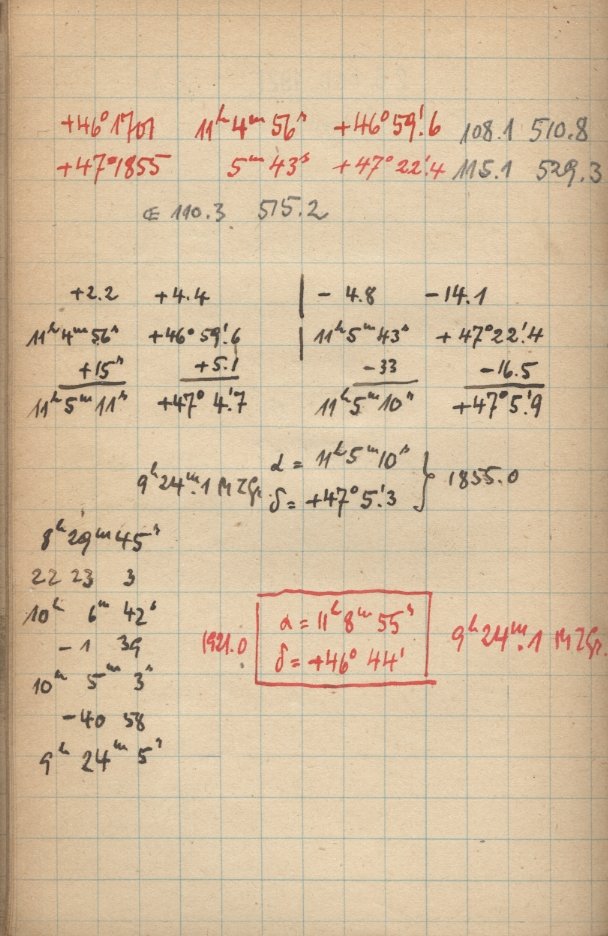 +46°1701 11ʰ4ᵐ56ˢ +46°59'.6 108.1 510.8
+47°1855 5ᵐ43ˢ +47°22'.4 115.1 529.3
110.3 515.2
+2.2 +4.4 | - 4.8 -14.1
11ʰ4ᵐ56ˢ +46°59'.6 | 11ʰ5ᵐ43ˢ +47°22'.4
+15ˢ +5.1 -33 -16.5
11ʰ5ᵐ11ˢ +47°4'.7 11ʰ5ᵐ10ˢ +47°5'.9
9ʰ24ᵐ.1 MZGr. α = 11ʰ5ᵐ10ˢ } 1855.0
δ = +47°5'.3
8ʰ29ᵐ45ˢ
22 23 3
10ʰ 6ᵐ 42ˢ
-1 39
10ʰ 5ᵐ 3ˢ
-40 58
9ʰ 24ᵐ 5ˢ
1921.0 α = 11ʰ 8ᵐ 55ˢ 9ʰ24ᵐ.1 MZGr.
δ = +46° 44'